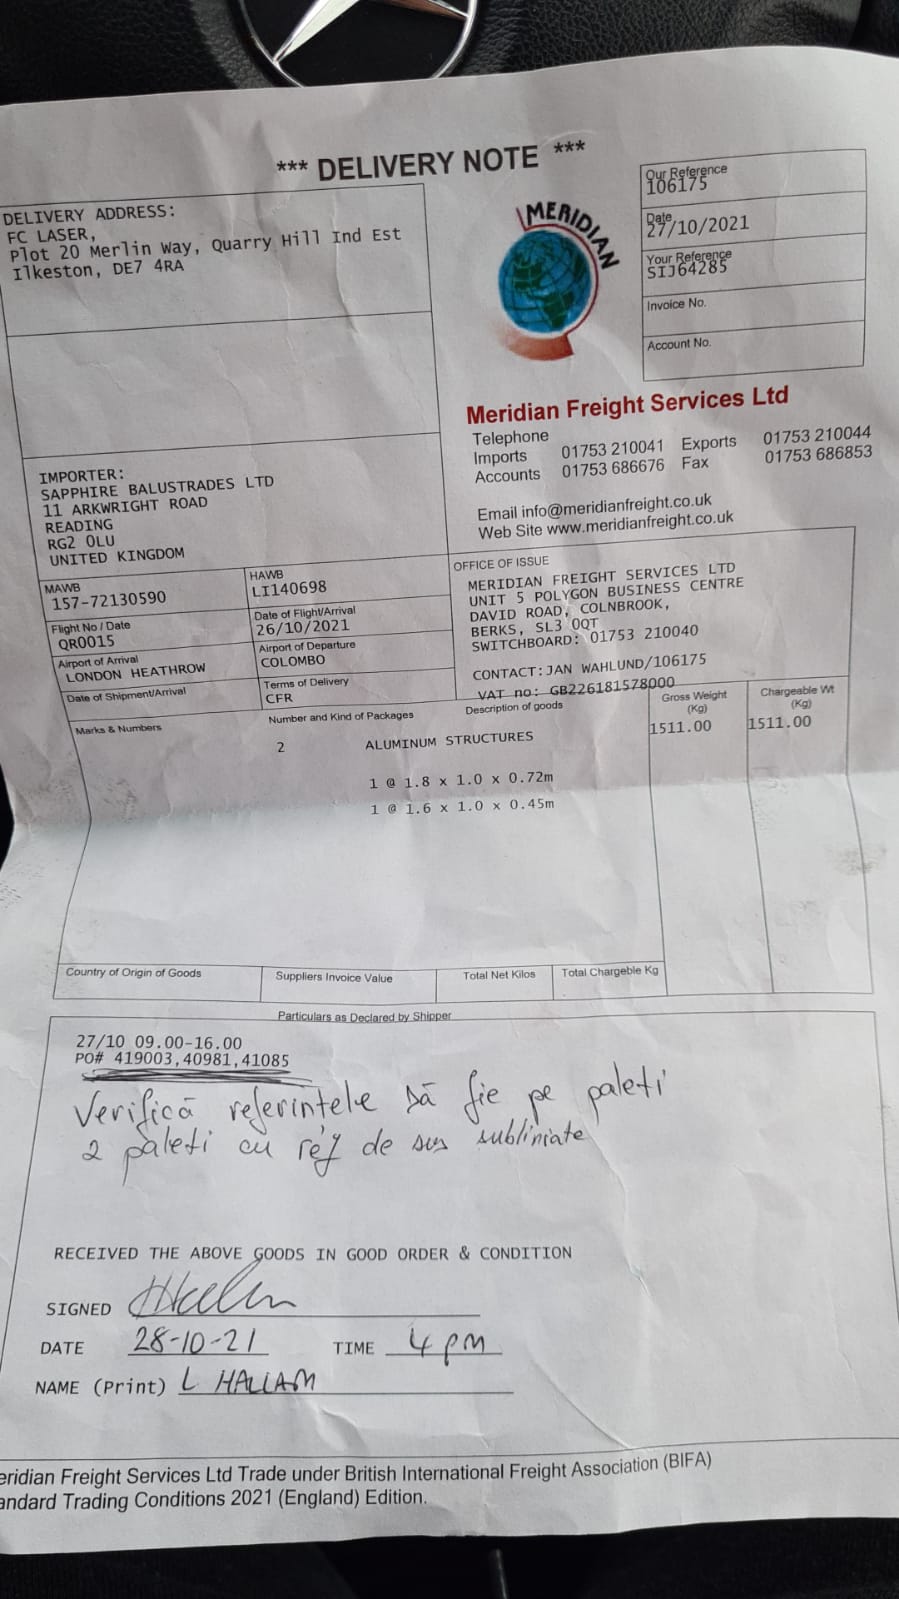 *** DELIVERY NOTE ***
DELIVERY ADDRESS:
FC LASER,
Plot 20 Merlin Way, Quarry Hill Ind Est
Ilkeston, DE7 4RA
Our Reference
106175
Date
27/10/2021
Your Reference
SIJ64285
Invoice No.
Account No.
MERIDIAN
Meridian Freight Services Ltd
Telephone
Imports 01753 210041 Exports 01753 210044
Accounts 01753 686676 Fax 01753 686853
Email info@meridianfreight.co.uk
Web Site www.meridianfreight.co.uk
IMPORTER:
SAPPHIRE BALUSTRADES LTD
11 ARKWRIGHT ROAD
READING
RG2 0LU
UNITED KINGDOM
MAWB
157-72130590
HAWB
LI140698
Flight No / Date
QR0015
Date of Flight/Arrival
26/10/2021
Airport of Arrival
LONDON HEATHROW
Airport of Departure
COLOMBO
Date of Shipment/Arrival
Terms of Delivery
CFR
OFFICE OF ISSUE
MERIDIAN FREIGHT SERVICES LTD
UNIT 5 POLYGON BUSINESS CENTRE
DAVID ROAD, COLNBROOK,
BERKS, SL3 0QT
SWITCHBOARD: 01753 210040
CONTACT:JAN WAHLUND/106175
VAT no: GB226181578000
Marks & Numbers
Number and Kind of Packages
Description of goods
Gross Weight
(Kg)
Chargeable Wt
(Kg)
2 ALUMINUM STRUCTURES 1511.00 1511.00
1 @ 1.8 x 1.0 x 0.72m
1 @ 1.6 x 1.0 x 0.45m
Country of Origin of Goods
Suppliers Invoice Value
Total Net Kilos
Total Chargeble Kg
Particulars as Declared by Shipper
27/10 09.00-16.00
PO# 419003,40981,41085
Verifică referintele să fie pe paleti
2 paleti cu ref de sus subliniate
RECEIVED THE ABOVE GOODS IN GOOD ORDER & CONDITION
SIGNED
DATE 28-10-21 TIME 4 pm
NAME (Print) L HALLAM
eridian Freight Services Ltd Trade under British International Freight Association (BIFA)
andard Trading Conditions 2021 (England) Edition.